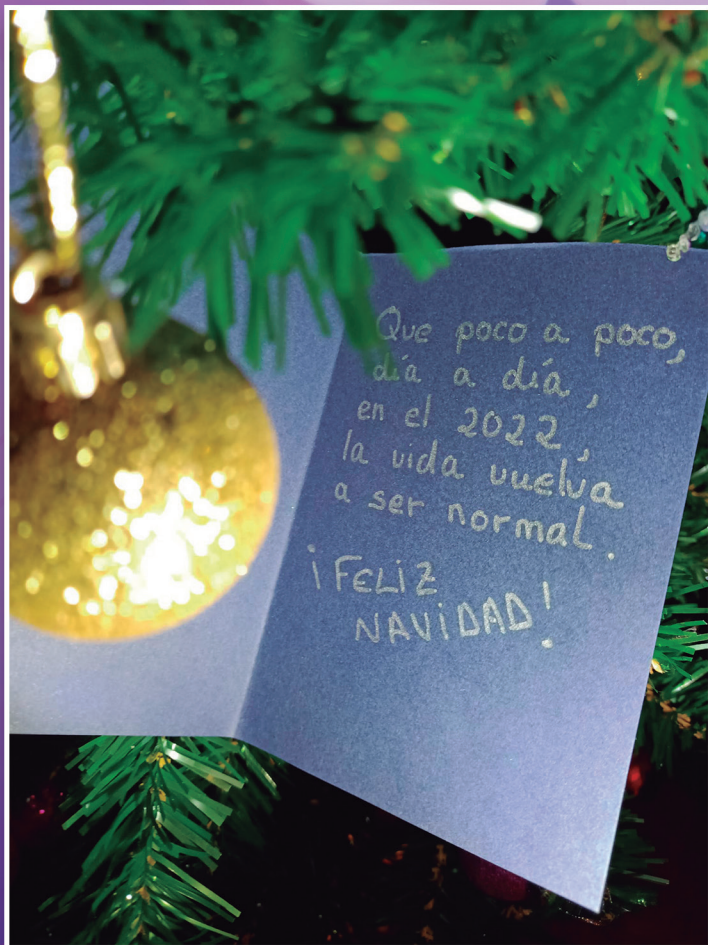 Que poco a poco,
día a día,
en el 2022,
la vida vuelva
a ser normal.
¡FELIZ
NAVIDAD!